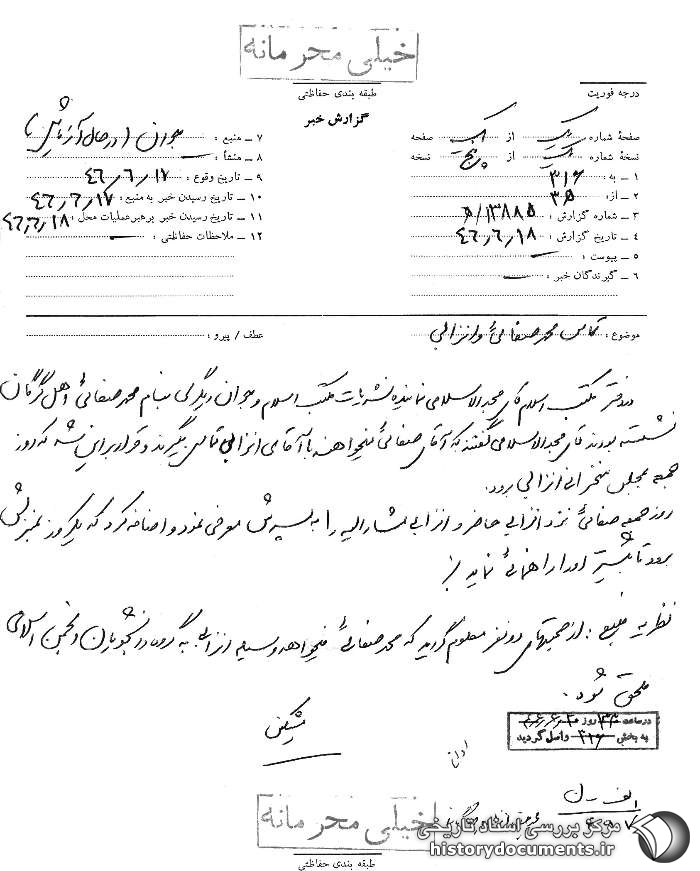 خیلی محرمانه
طبقه بندی حفاظتی
درجه فوریت
گزارش خبر
صفحهٔ شماره یک از یک صفحه
نسخهٔ شماره یک از پنج نسخه
۱ ـ به : ۳۱۶
۲ ـ از: ۳۵
۳ ـ شماره گزارش : ۱۳۸۸۵/ ۵
۴ ـ تاریخ گزارش : ۴۶٫۶٫۱۸
۵ ـ پیوست : ـ
۶ ـ گیرندگان خبر : ـ
۷ ـ منبع : جوان (در حال آزمایش)
۸ ـ منشأ : ـ
۹ ـ تاریخ وقوع : ۴۶٫۶٫۱۷
۱۰ ـ تاریخ رسیدن خبر به منبع : ۴۶٫۶٫۱۷
۱۱ ـ تاریخ رسیدن خبر برهبر عملیات محل : ۴۶٫۶٫۱۸
۱۲ ـ ملاحظات حفاظتی : ـ
موضوع : تماس محمد صفائی و انزابی
عطف / پیرو :
در دفتر مکتب اسلام آقای مجدالاسلامی نماینده نشریات مکتب اسلام و جوان دیگری بنام محمد صفائی اهل گرگان
نشسته بودند آقای مجدالاسلامی گفتند که آقای صفائی میخواهند با آقای انزابی تماس بگیرند و قرار براین شد که روز
جمعه مجلس سخنرانی انزابی برود.
روز جمعه صفائی نزد انزابی حاضر و انزابی مشارالیه را به پسرش معرفی نمود و اضافه کرد که یکروز بمنزلش
برود تا بیشتر او را راهنمائی نماید
نظریه منبع : از صحبتهای دو نفر معلوم گردید که محمد صفائی میخواهد وسیله انزابی به گروه دانشجویان و انجمن اسلامی
ملحق شود.
در ساعت روز
به بخش ۳۱۶ واصل گردید
خیلی محرمانه
طبقه بندی حفاظتی
مرکز بررسی اسناد تاریخی
historydocuments.ir